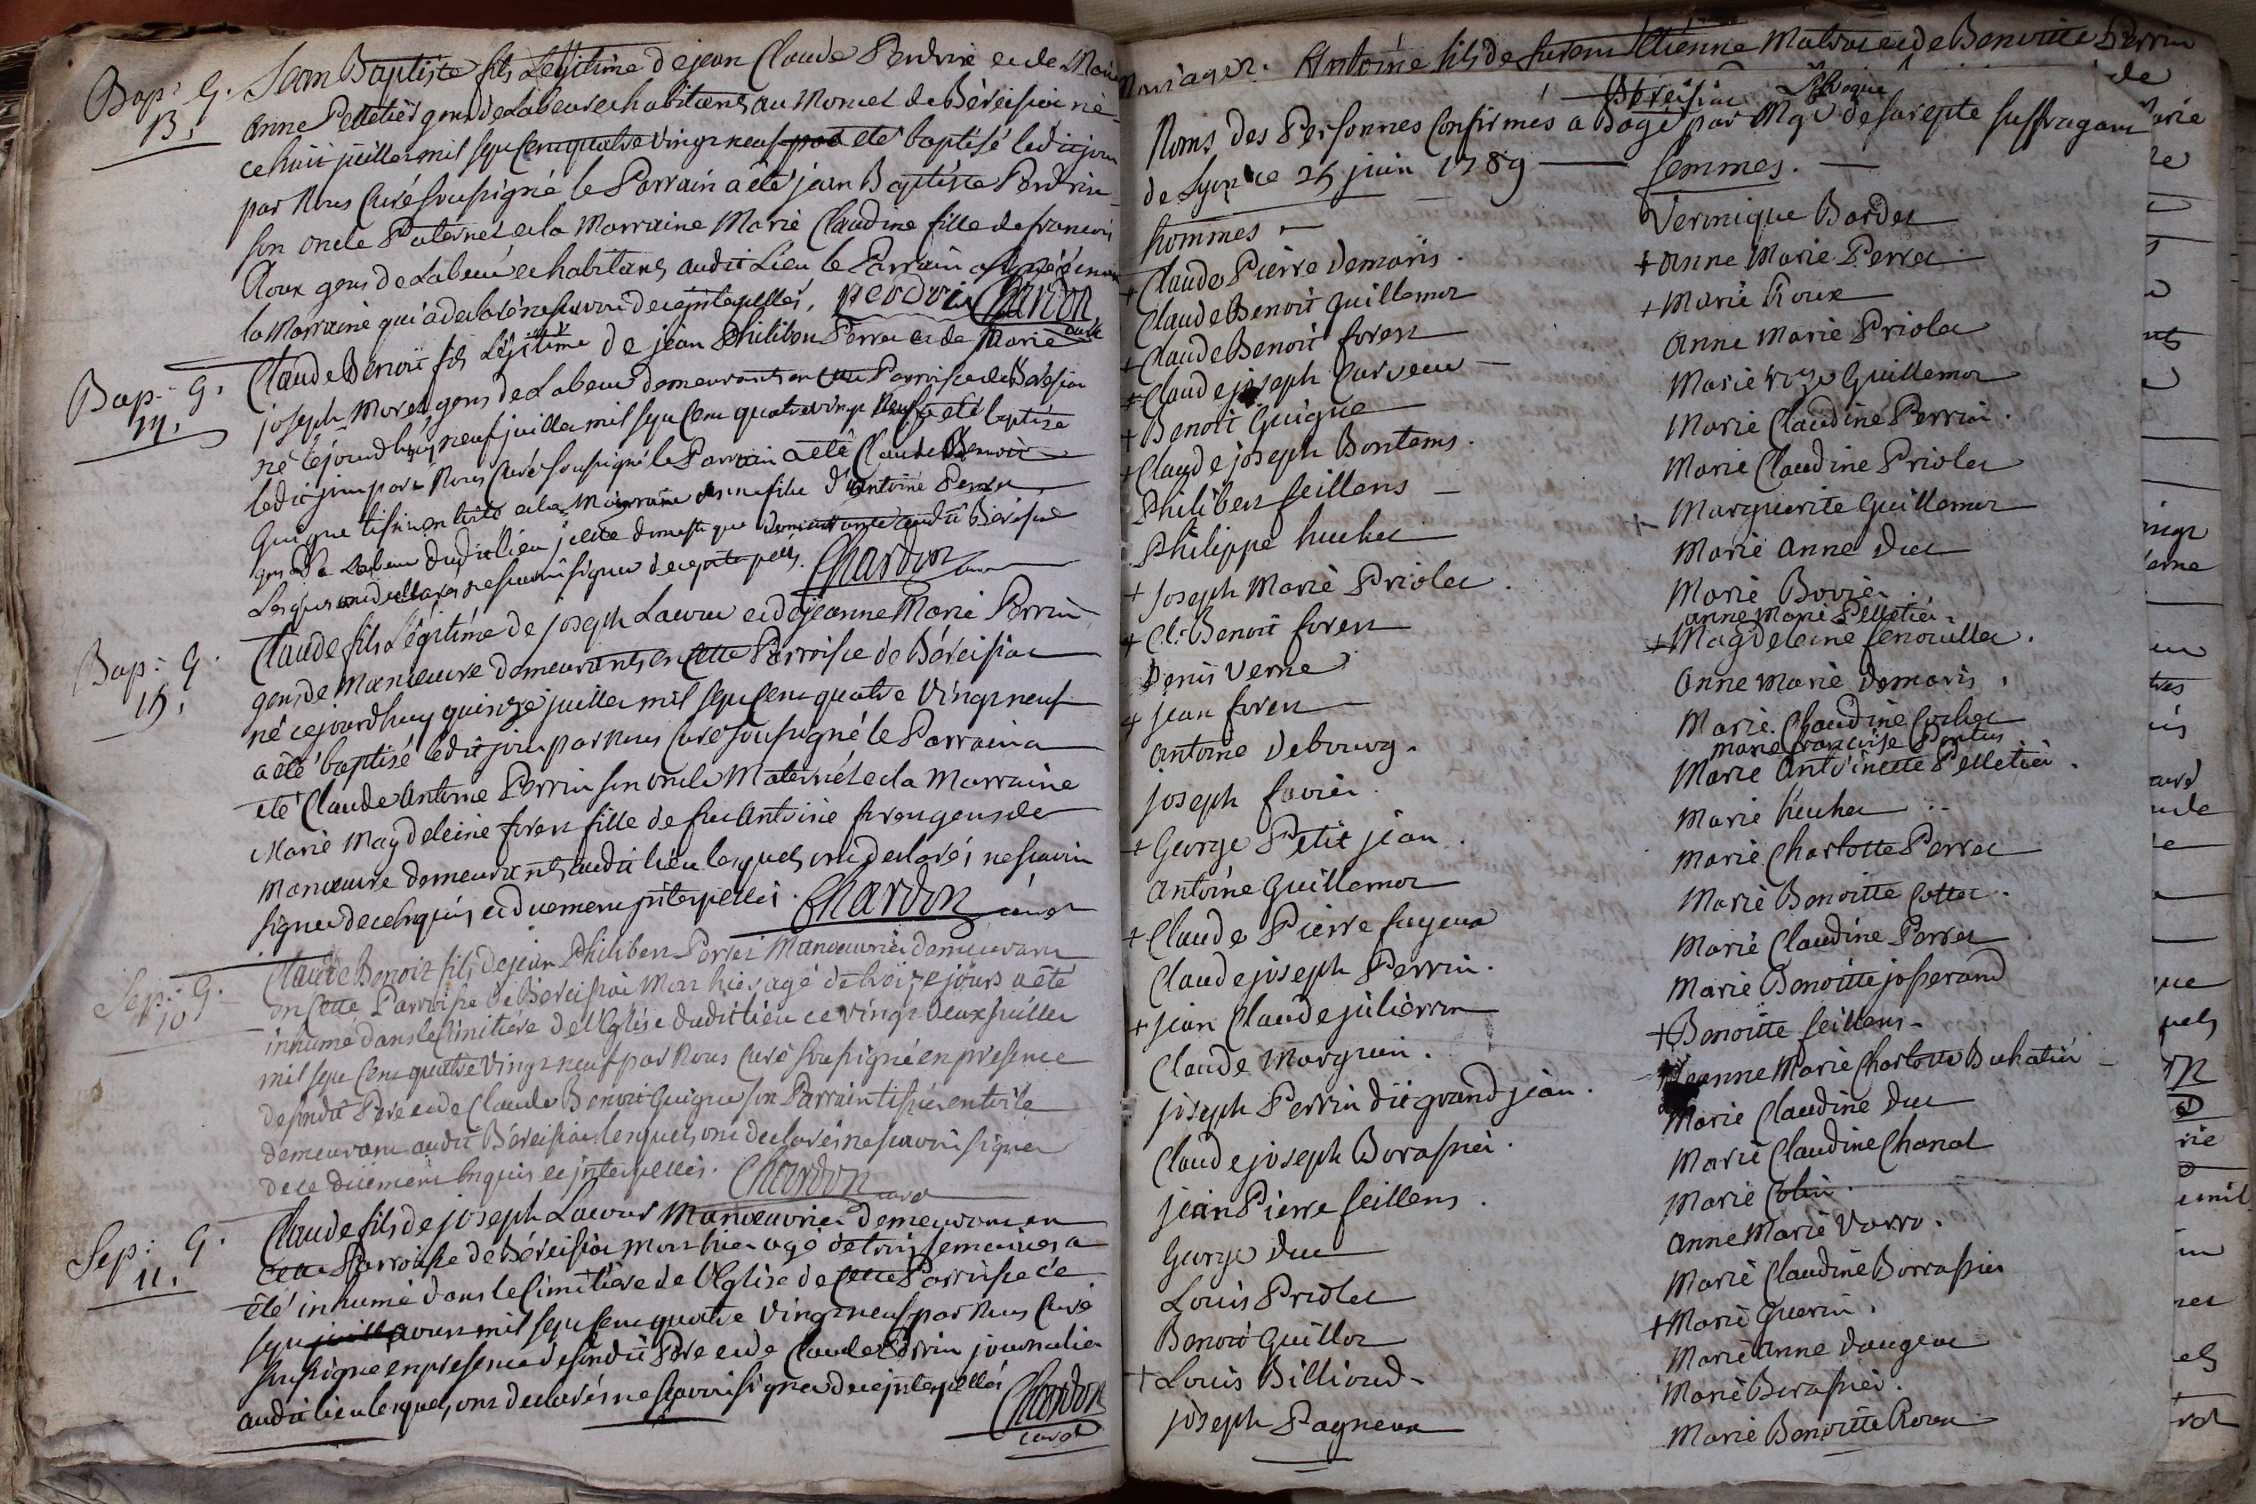 Bap: G.
13.
Jean Baptiste fils Légitime de jean Claude Perdrix et de Marie
anne Pelletier gens de Labeur et habitans au Moncel de Béreisiat né
ce huit juillet mil sept cent quatre vingt neuf a été baptisé ledit jour
par Nous Curé soussigné le Parrain a été jean Baptiste Perdrix
son oncle Paternel et la Marraine Marie Claudine fille de francois
Roux gens de Labeur et habitans audit Lieu le Parrain a signé et non
la Marraine qui a declaré ne scavoir de ce interpellés. perdrix Chardon
Bap: G.
14.
Claude Benoit fils Légitime de jean Philibert Perret et de Marie
joseph Morel gens de Labeur demeurants en cette Parroisse de Béreisiat
né cejourdhuy neuf juillet mil sept cent quatre vingt neuf a été baptisé
ledit jour par Nous Curé soussigné le Parrain a été Claude Benoit
Guigue tissier en toile et la Marraine anne fille d'antoine Perret
gens de Labeur dudit lieu demeurante audit Béreisiat
Lesquels ont declarés ne scavoir signer de ce interpellés. Chardon curé
Bap: G.
15.
Claude fils Légitime de joseph Lacour et de jeanne Marie Perrin
gens de Manœuvre demeurants en cette Parroisse de Béreisiat
né cejourdhuy quinze juillet mil sept cent quatre vingt neuf
a été baptisé ledit jour par nous Curé soussigné le Parrain a
été Claude Antoine Perrin son oncle Maternel et la Marraine
Marie Magdeleine foren fille de feu Antoine foren gens de
Manœuvre demeurants audit lieu lesquels ont declarés ne scavoir
signer de ce enquis et duement interpellés. Chardon curé
Sep: G.
10
Claude Benoit fils de jean Philibert Perret Manœuvrier demeurant
en cette Parroisse de Béreisiat Mort hier agé de treize jours a été
inhumé dans le Cimitière de l'Eglise dudit lieu ce vingt deux juillet
mil sept cent quatre vingt neuf par Nous Curé soussigné en presence
de sondit Pere et de Claude Benoit Guigue son Parrain tissier en toile
demeurant audit Béreisiat lesquels ont declarés ne scavoir signer
de ce duement enquis et interpellés. Chardon curé
Sep: G.
11.
Claude fils de joseph Lacour Manœuvrier demeurant en
cette Parroisse de Béreisiat mort hier agé de trois semaines a
été inhumé dans le Cimitière de l'Eglise de cette Parroisse ce
sept juillet aout mil sept cent quatre vingt neuf par Nous Curé
soussigné en presence de sondit Pere et de Claude Perrin journalier
audit lieu lesquels ont declarés ne scavoir signer de ce interpellés Chardon
curé
Mariages. Antoine fils de furent Etienne Malvas et de Benoitte Perrin
Béreisiat Evêque
Noms des Personnes Confirmés a Bagé par Mgr de sarepte suffragant
de Lyon ce 25 juin 1789
hommes
+ Claude Pierre Demaris.
Claude Benoit Guillemot
+ Claude Benoit foren
+ Claude joseph Carveur
+ Benoit Guigue
+ Claude joseph Bontems.
Philibert feillens
Philippe huchet
+ Joseph Marie Priolet.
+ Cl: Benoit foren
Denis Verne
+ jean foren
antoine Debourg.
joseph favier.
+ George Petit jean.
antoine Guillemot
+ Claude Pierre fageux
Claude joseph Perrin.
+ jean Claude julierrin
Claude Morguin.
joseph Perrin dit grand jean.
Claude joseph Borassier.
jean Pierre feillens.
George Duc
Louis Priolet
Benoit Guillot
+ Louis Billioud
joseph Pagneux
femmes.
Veronique Bardet
+ anne Marie Perret
+ Marie Roux
anne Marie Priolet
Marie roze Guillemot
Marie Claudine Perrin.
Marie Claudine Priolet
+ Marguerite Guillemot
Marie anne Duc
Marie Bovier
anne Marie Pelletier.
+ Magdeleine fenouillet.
anne Marie Demaris.
Marie Claudine Cochet
marie francoise Pontus
Marie antoinette Pelletier.
Marie huchet
Marie Charlotte Perret
Marie Benoitte Cottet.
Marie Claudine Perret
Marie Benoitte josserand
+ Benoitte feillens.
jeanne Marie Charlotte Buhatier
Marie Claudine Duc
Marie Claudine Chanal
Marie Colin.
anne Marie Varro.
Marie Claudine Borrassier
+ Marie Guerin.
Marie anne Daujeat
Marie Borassier.
Marie Benoitte Roux